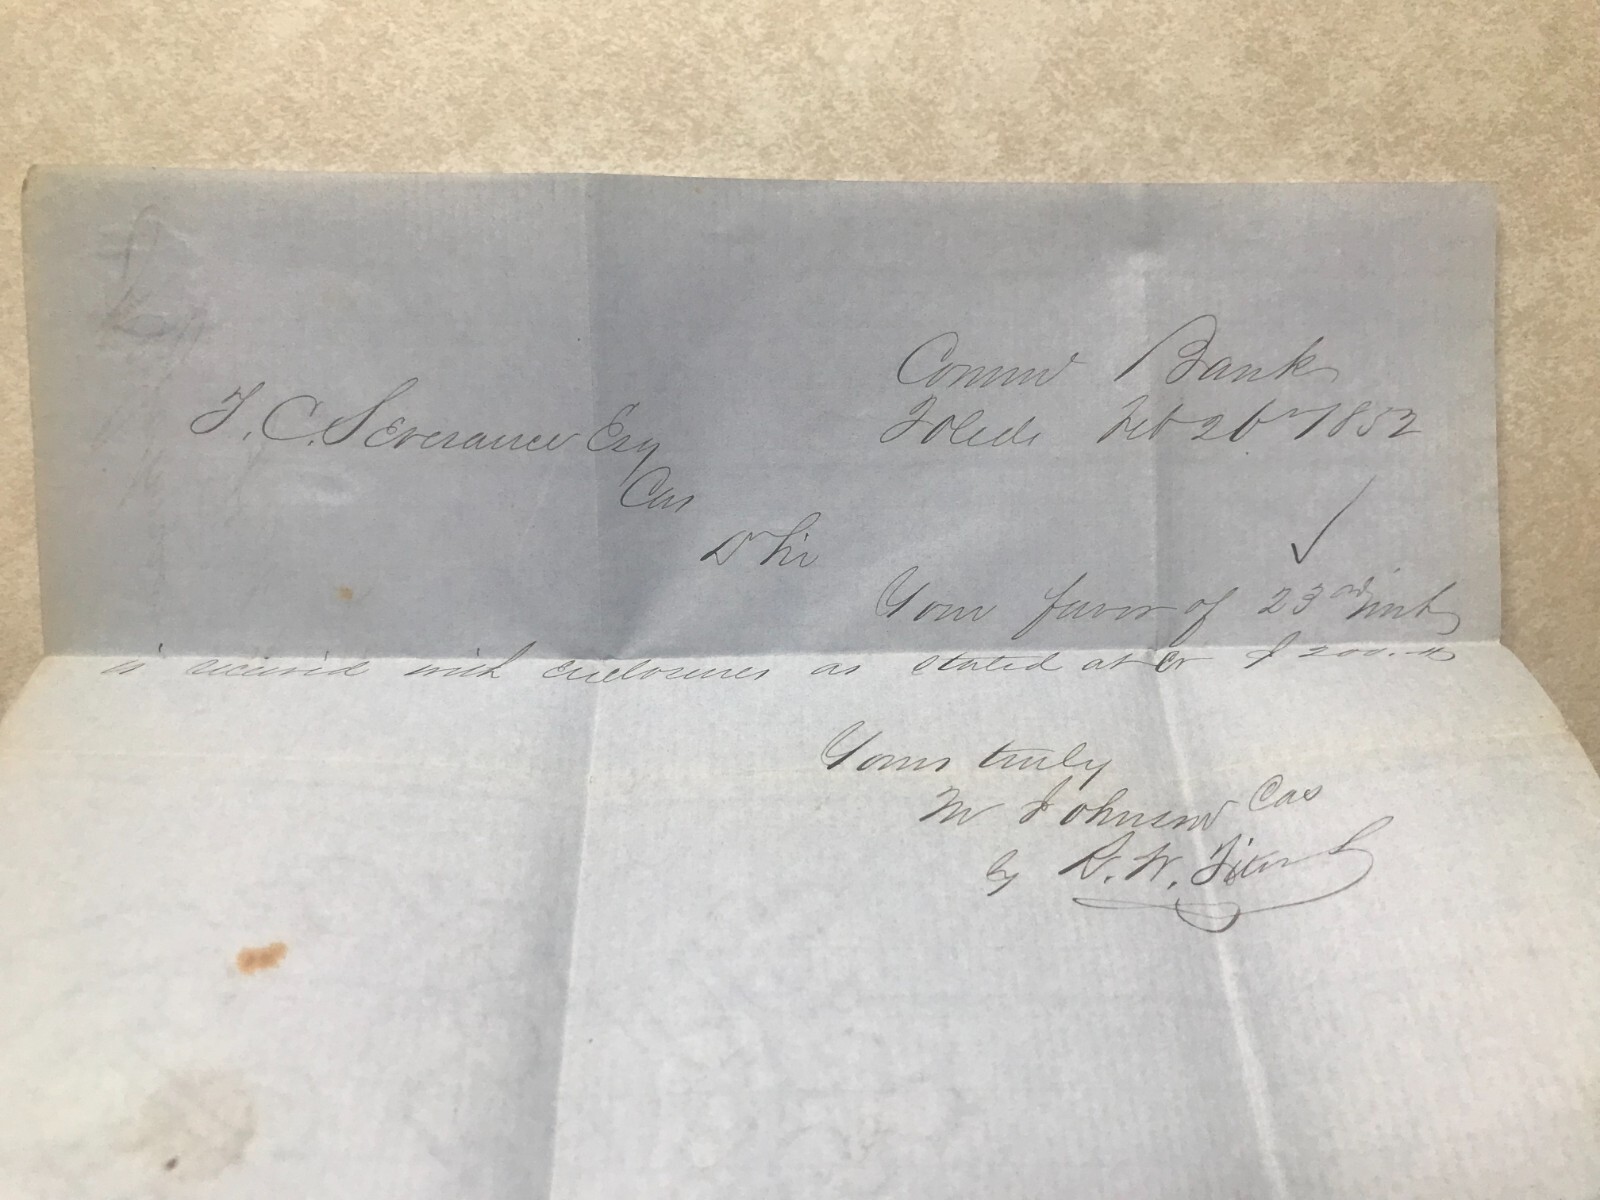 Comml Bank
Toledo Feb 26th 1852
T. C. Severance Esq
Cas
Dr Sir
Your favor of 23rd inst
is received with enclosures as stated at Cr $200.
Yours truly
M Johnson Cas
by D. W.